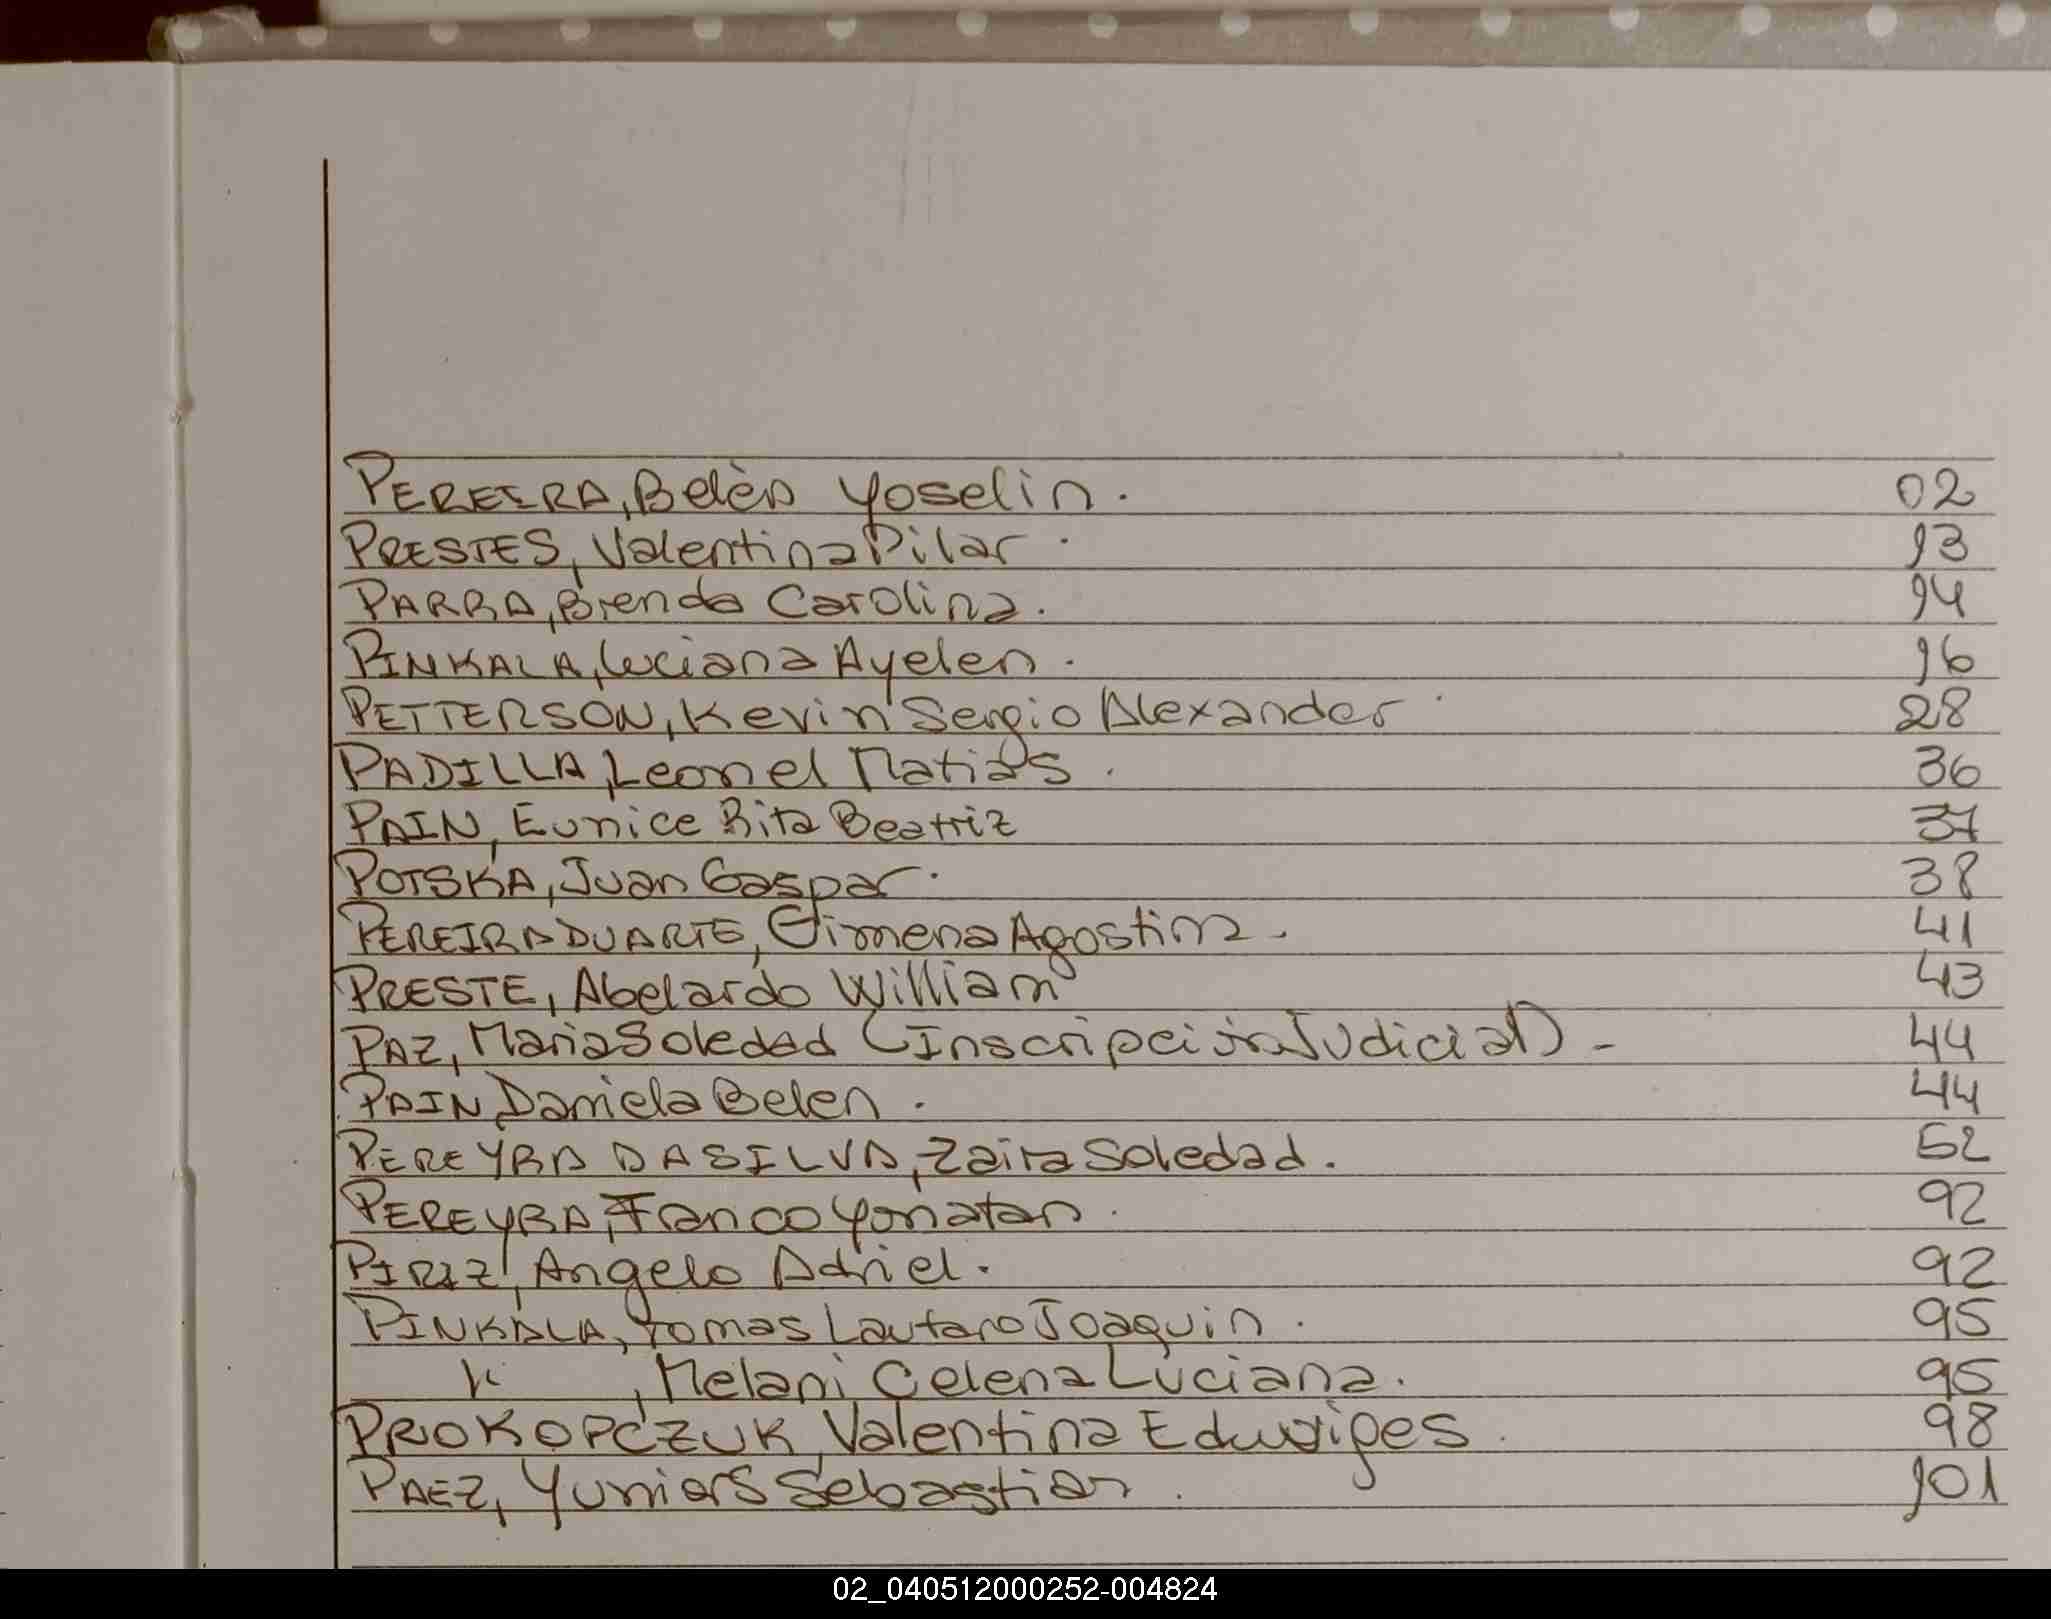 PEREIRA, Belèn Yoselin. 02
PRESTES, Valentina Pilar. 13
PARRA, Brenda Carolina. 14
PINKALA, Luciana Ayelen. 16
PETTERSON, Kevin Sergio Alexander. 28
PADILLA, Leonel Matias. 36
PAIN, Eunice Rita Beatriz 37
POTSKA, Juan Gaspar. 38
PEREIRA DUARTE, Gimena Agostina. 41
PRESTE, Abelardo William 43
PAZ, Maria Soledad (Inscripción Judicial) - 44
PAIN, Daniela Belen. 44
PEREYRA DA SILVA, Zaira Soledad. 52
PEREYRA, Franco Yonatan. 92
PIRIZ, Angelo Adriel. 92
PINKALA, Tomas Lautaro Joaquin. 95
, Melani Celena Luciana. 95
PROKOPCZUK, Valentina Eduviges. 98
PAEZ, Yuniors Sebastian. 101
02_040512000252-004824